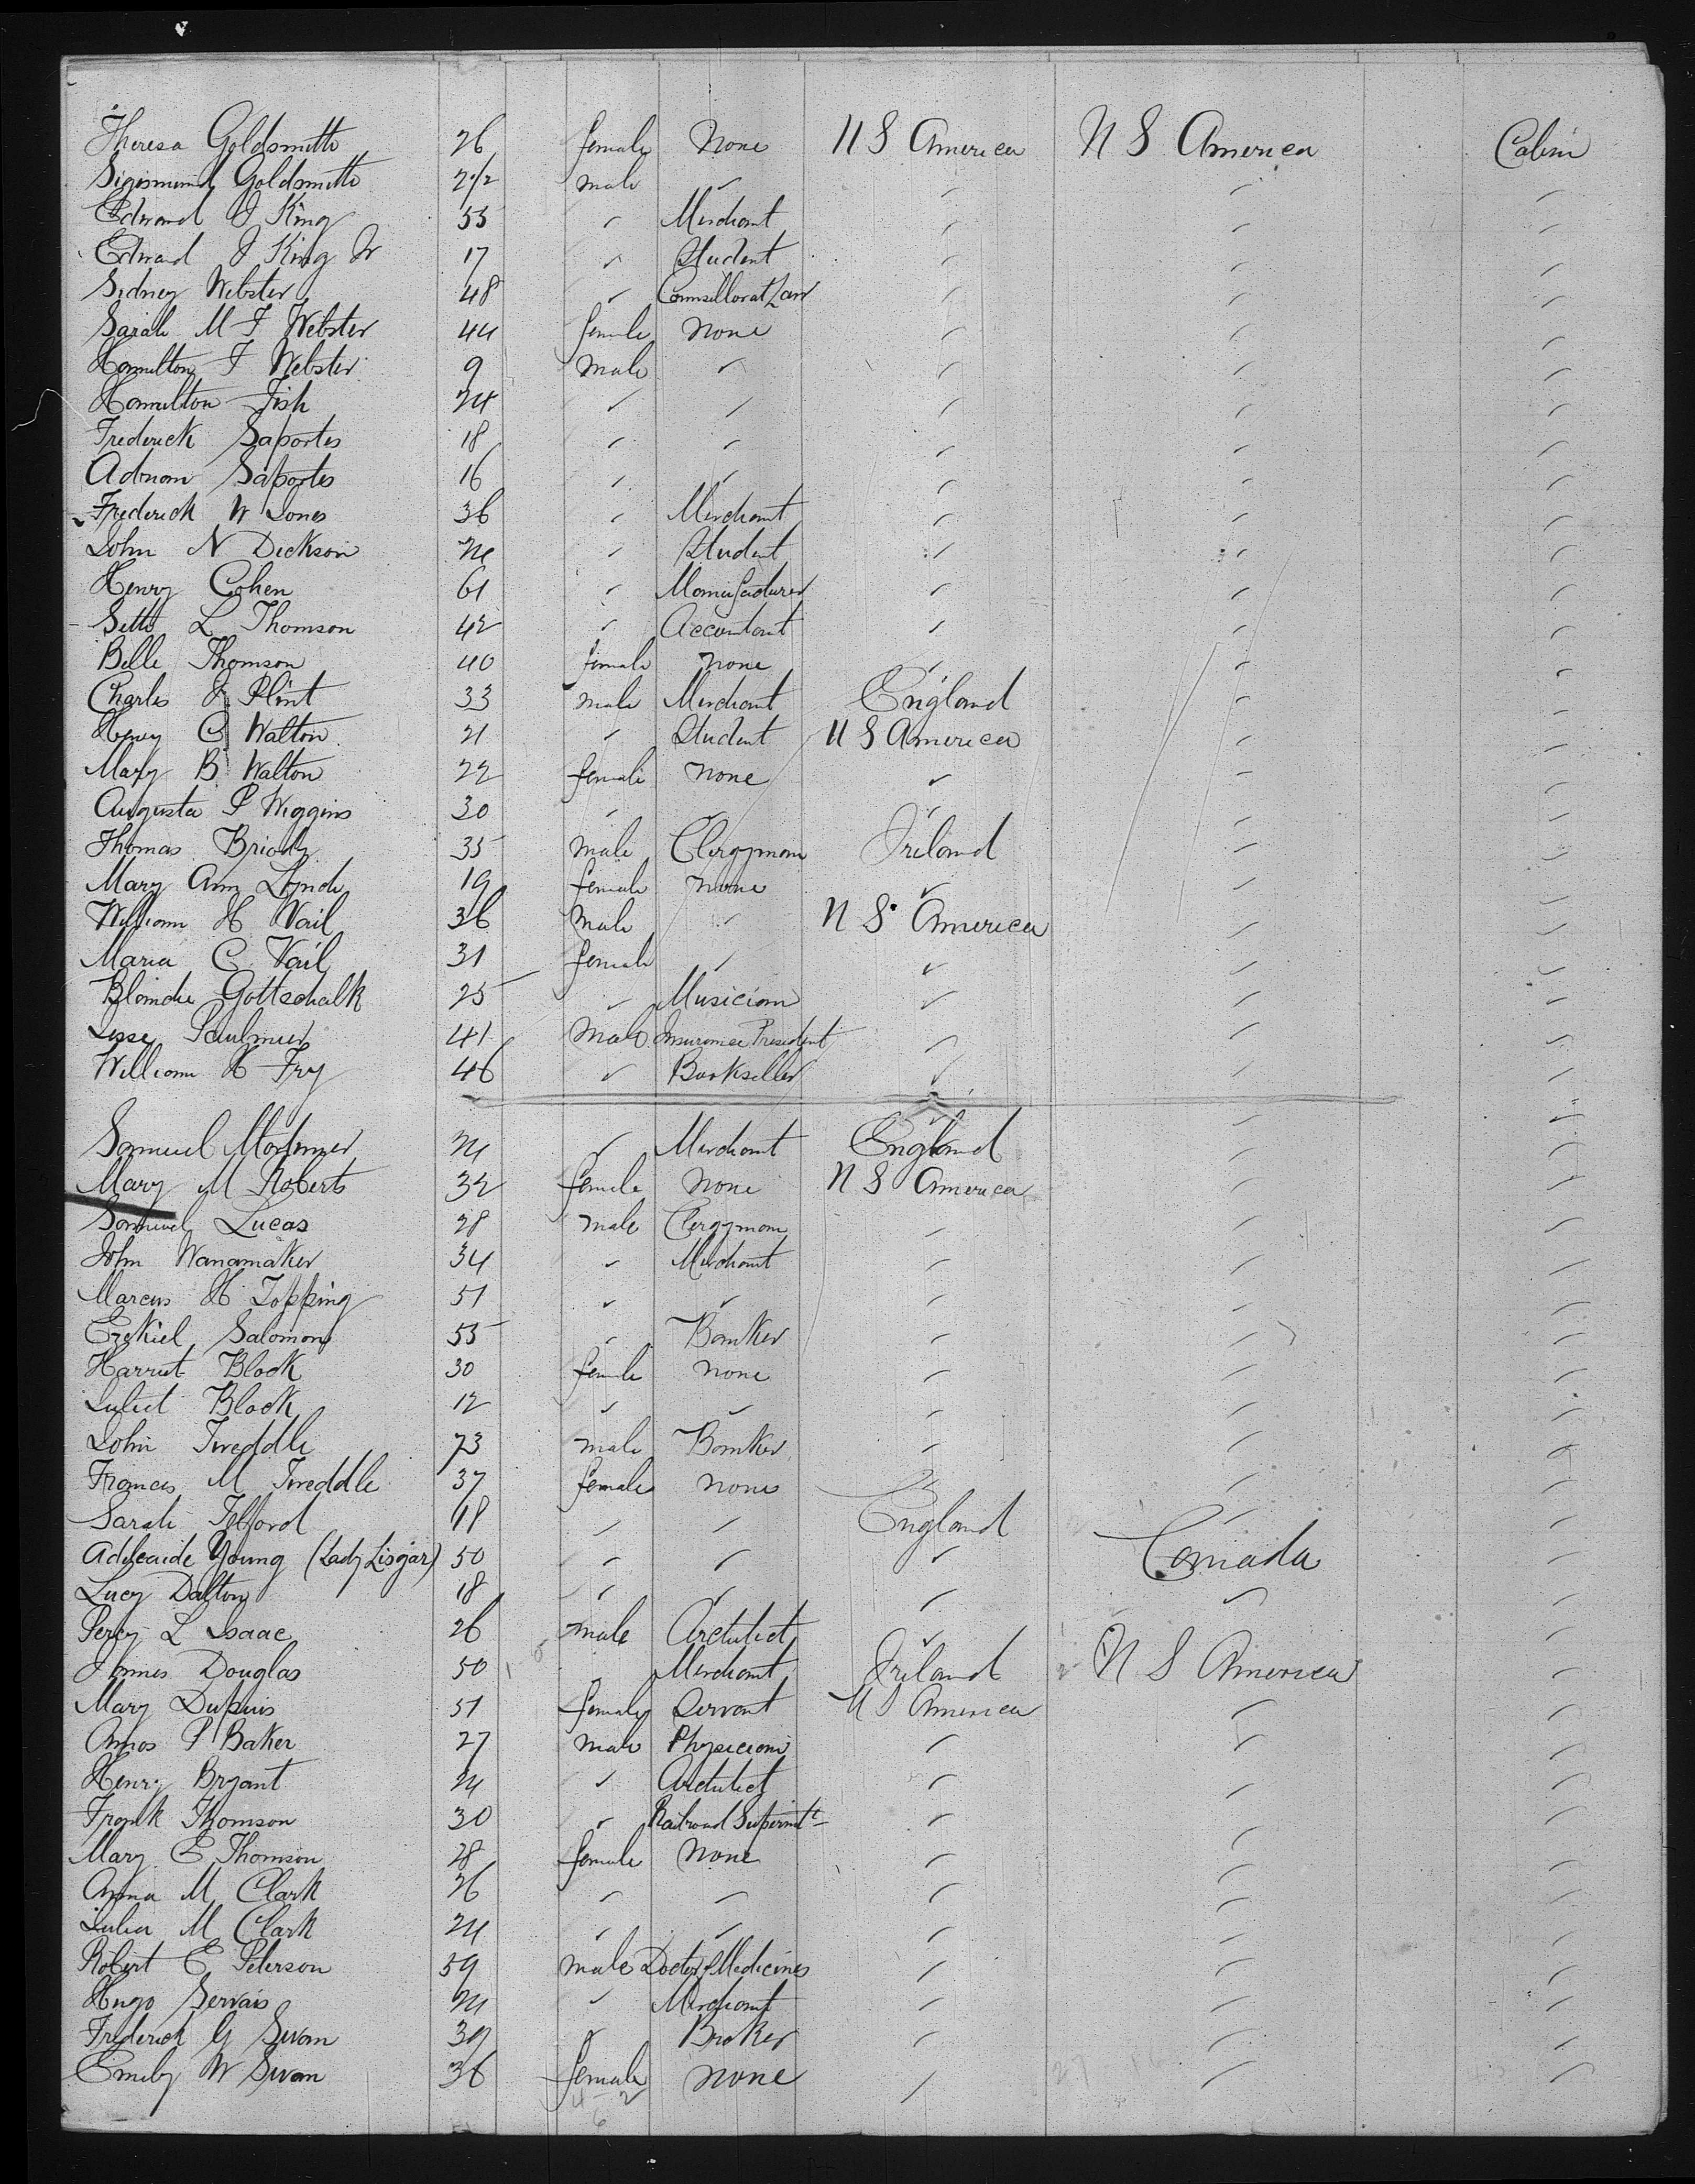 Theresa Goldsmith 26 female None U S America U S America Cabin
Sigismund Goldsmith 2 1/2 male " " " "
Edward J King 55 " Merchant " " "
Edward J King Jr 17 " Student " " "
Sidney Webster 48 " Counsellor at Law " " "
Sarah M F Webster 44 female None " " "
Hamilton F Webster 9 Male " " " "
Hamilton Fish 24 " " " " "
Frederick Saportes 18 " " " " "
Adrian Saportes 16 " " " " "
Frederick W Jones 36 " Merchant " " "
John N Dickson 24 " Student " " "
Henry Cohen 61 " Manufacturer " " "
Seth L Thomson 42 " Accountant " " "
Belle Thomson 40 female None " " "
Charles J Plint 33 male Merchant England " "
Henry C Walton 21 " Student U S America " "
Mary B Walton 22 female None " " "
Augusta P Wiggins 30 " " " "
Thomas Briody 35 male Clergyman Ireland " "
Mary Ann Lynch 19 female None " " "
William H Vail 36 Male " U S America " "
Maria C Vail 31 female " " " "
Blanche Gottschalk 25 " Musician " " "
Jesse Paulmier 41 Male Insurance President " " "
William H Fry 46 " Bookseller " " "
Samuel Mortimer 24 " Merchant England " "
Mary M Roberts 32 female None U S America " "
Samuel Lucas 28 male Clergyman " " "
John Wanamaker 34 " Merchant " " "
Marcus H Topping 51 " " " " "
Ezekiel Salomon 55 " Banker " " "
Harriet Block 30 female None " " "
Juliet Block 12 " " " " "
John Tweddle 73 male Banker " " "
Frances M Tweddle 37 female None " " "
Sarah Telford 18 " " England " "
Adelaide Young (Lady Lisgar) 50 " " " Canada "
Lucy Dalton 18 " " " " "
Percy L Isaac 26 male Architect " "
James Douglas 50 " Merchant Ireland U S America "
Mary Dupuis 51 female Servant U S America " "
Amos P Baker 27 Male Physician " " "
Henry Bryant 24 " Architect " " "
Frank Thomson 30 " Railroad Superintt " " "
Mary E Thomson 28 female None " " "
Anna M Clark 26 " " " " "
Julia M Clark 24 " " " " "
Robert E Peterson 59 male Doctor of Medicines " " "
Hugo Servais 24 " Merchant " " "
Frederick G Swan 39 " Broker " " "
Emily W Swan 36 female None " " "